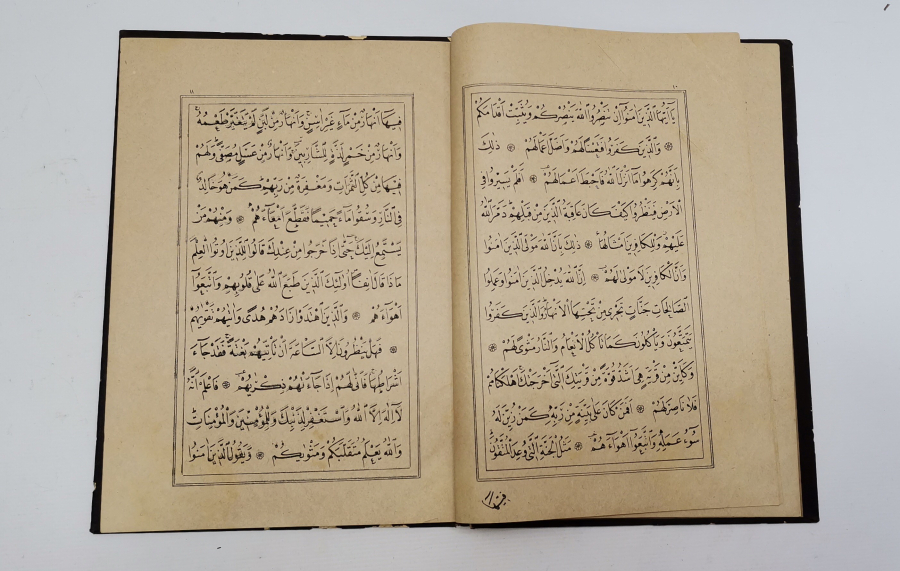 ١٠
يَآ اَيُّهَا الَّذ۪ينَ اٰمَنُٓوا اِنْ تَنْصُرُوا اللّٰهَ يَنْصُرْكُمْ وَيُثَبِّتْ اَقْدَامَكُمْ
۞ وَالَّذ۪ينَ كَفَرُوا فَتَعْسًا لَهُمْ وَاَضَلَّ اَعْمَالَهُمْ ۞ ذٰلِكَ
بِاَنَّهُمْ كَرِهُوا مَٓا اَنْزَلَ اللّٰهُ فَاَحْبَطَ اَعْمَالَهُمْ ۞ اَفَلَمْ يَس۪يرُوا فِي
الْاَرْضِ فَيَنْظُرُوا كَيْفَ كَانَ عَاقِبَةُ الَّذ۪ينَ مِنْ قَبْلِهِمْ دَمَّرَ اللّٰهُ
عَلَيْهِمْ وَلِلْكَافِر۪ينَ اَمْثَالُهَا ۞ ذٰلِكَ بِاَنَّ اللّٰهَ مَوْلَى الَّذ۪ينَ اٰمَنُوا
وَاَنَّ الْكَافِر۪ينَ لَا مَوْلٰى لَهُمْ ۞ اِنَّ اللّٰهَ يُدْخِلُ الَّذ۪ينَ اٰمَنُوا وَعَمِلُوا
الصَّالِحَاتِ جَنَّاتٍ تَجْر۪ي مِنْ تَحْتِهَا الْاَنْهَارُ وَالَّذ۪ينَ كَفَرُوا
يَتَمَتَّعُونَ وَيَاْكُلُونَ كَمَا تَاْكُلُ الْاَنْعَامُ وَالنَّارُ مَثْوًى لَهُمْ ۞
وَكَاَيِّنْ مِنْ قَرْيَةٍ هِيَ اَشَدُّ قُوَّةً مِنْ قَرْيَتِكَ الَّت۪ٓي اَخْرَجَتْكَ اَهْلَكْنَاهُمْ
فَلَا نَاصِرَ لَهُمْ ۞ اَفَمَنْ كَانَ عَلٰى بَيِّنَةٍ مِنْ رَبِّه۪ كَمَنْ زُيِّنَ لَهُ
سُٓوءُ عَمَلِه۪ وَاتَّبَعُٓوا اَهْوَٓاءَهُمْ ۞ مَثَلُ الْجَنَّةِ الَّت۪ي وُعِدَ الْمُتَّقُونَ
فيها
١١
ف۪يهَٓا اَنْهَارٌ مِنْ مَٓاءٍ غَيْرِ اٰسِنٍ وَاَنْهَارٌ مِنْ لَبَنٍ لَمْ يَتَغَيَّرْ طَعْمُهُ
وَاَنْهَارٌ مِنْ خَمْرٍ لَذَّةٍ لِلشَّارِب۪ينَ وَاَنْهَارٌ مِنْ عَسَلٍ مُصَفًّى وَلَهُمْ
ف۪يهَا مِنْ كُلِّ الثَّمَرَاتِ وَمَغْفِرَةٌ مِنْ رَبِّهِمْ كَمَنْ هُوَ خَالِدٌ
فِي النَّارِ وَسُقُوا مَٓاءً حَم۪يمًا فَقَطَّعَ اَمْعَٓاءَهُمْ ۞ وَمِنْهُمْ مَنْ
يَسْتَمِعُ اِلَيْكَ حَتّٰٓى اِذَا خَرَجُوا مِنْ عِنْدِكَ قَالُوا لِلَّذ۪ينَ اُو۫تُوا الْعِلْمَ
مَاذَا قَالَ اٰنِفًا اُو۬لٰٓئِكَ الَّذ۪ينَ طَبَعَ اللّٰهُ عَلٰى قُلُوبِهِمْ وَاتَّبَعُٓوا
اَهْوَٓاءَهُمْ ۞ وَالَّذ۪ينَ اهْتَدَوْا زَادَهُمْ هُدًى وَاٰتٰيهُمْ تَقْوٰيهُمْ
۞ فَهَلْ يَنْظُرُونَ اِلَّا السَّاعَةَ اَنْ تَاْتِيَهُمْ بَغْتَةً فَقَدْ جَٓاءَ
اَشْرَاطُهَا فَاَنّٰى لَهُمْ اِذَا جَٓاءَتْهُمْ ذِكْرٰيهُمْ ۞ فَاعْلَمْ اَنَّهُ
لَٓا اِلٰهَ اِلَّا اللّٰهُ وَاسْتَغْفِرْ لِذَنْبِكَ وَلِلْمُؤْمِن۪ينَ وَالْمُؤْمِنَاتِ
وَاللّٰهُ يَعْلَمُ مُتَقَلَّبَكُمْ وَمَثْوٰيكُمْ ۞ وَيَقُولُ الَّذ۪ينَ اٰمَنُوا